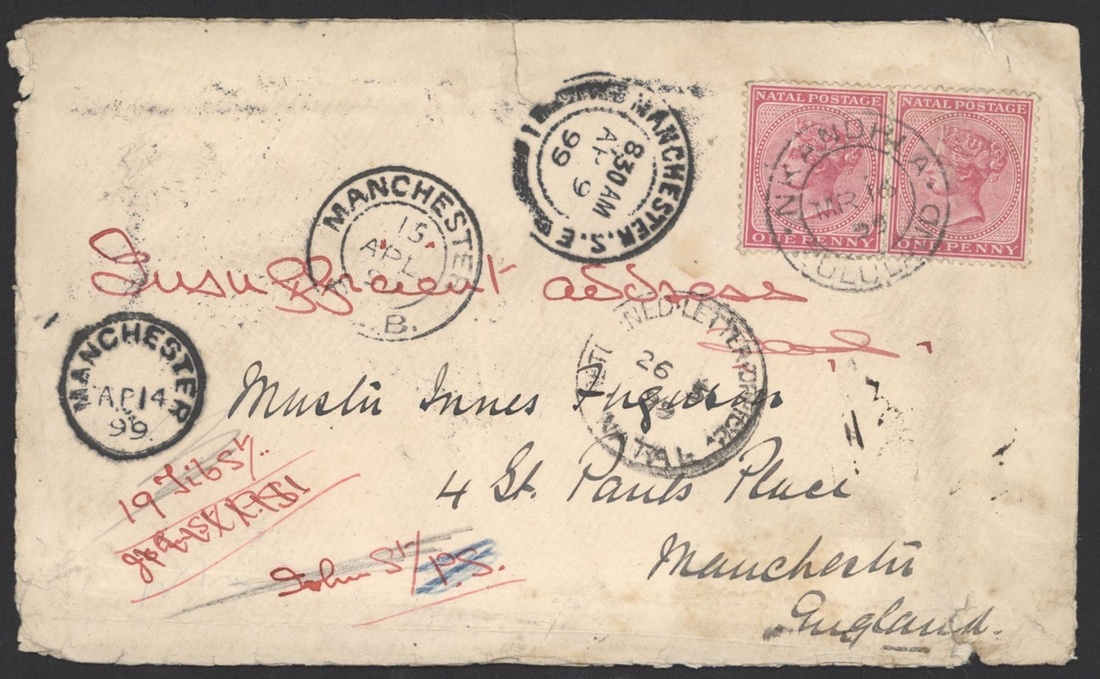 NATAL POSTAGE
ONE PENNY
NATAL POSTAGE
ONE PENNY
NKANDHLA
MR 16
99
MANCHESTER.S.E
830AM
AP 9
99
MANCHESTER
15
APL
B.
MANCHESTER
AP 14
99
Insufficient address
NED LETTER OFFICE
26
NATAL
Master Innes Ferguson
4 St. Pauls Place
Manchester
England.
19 Tib St.
John St / PS.